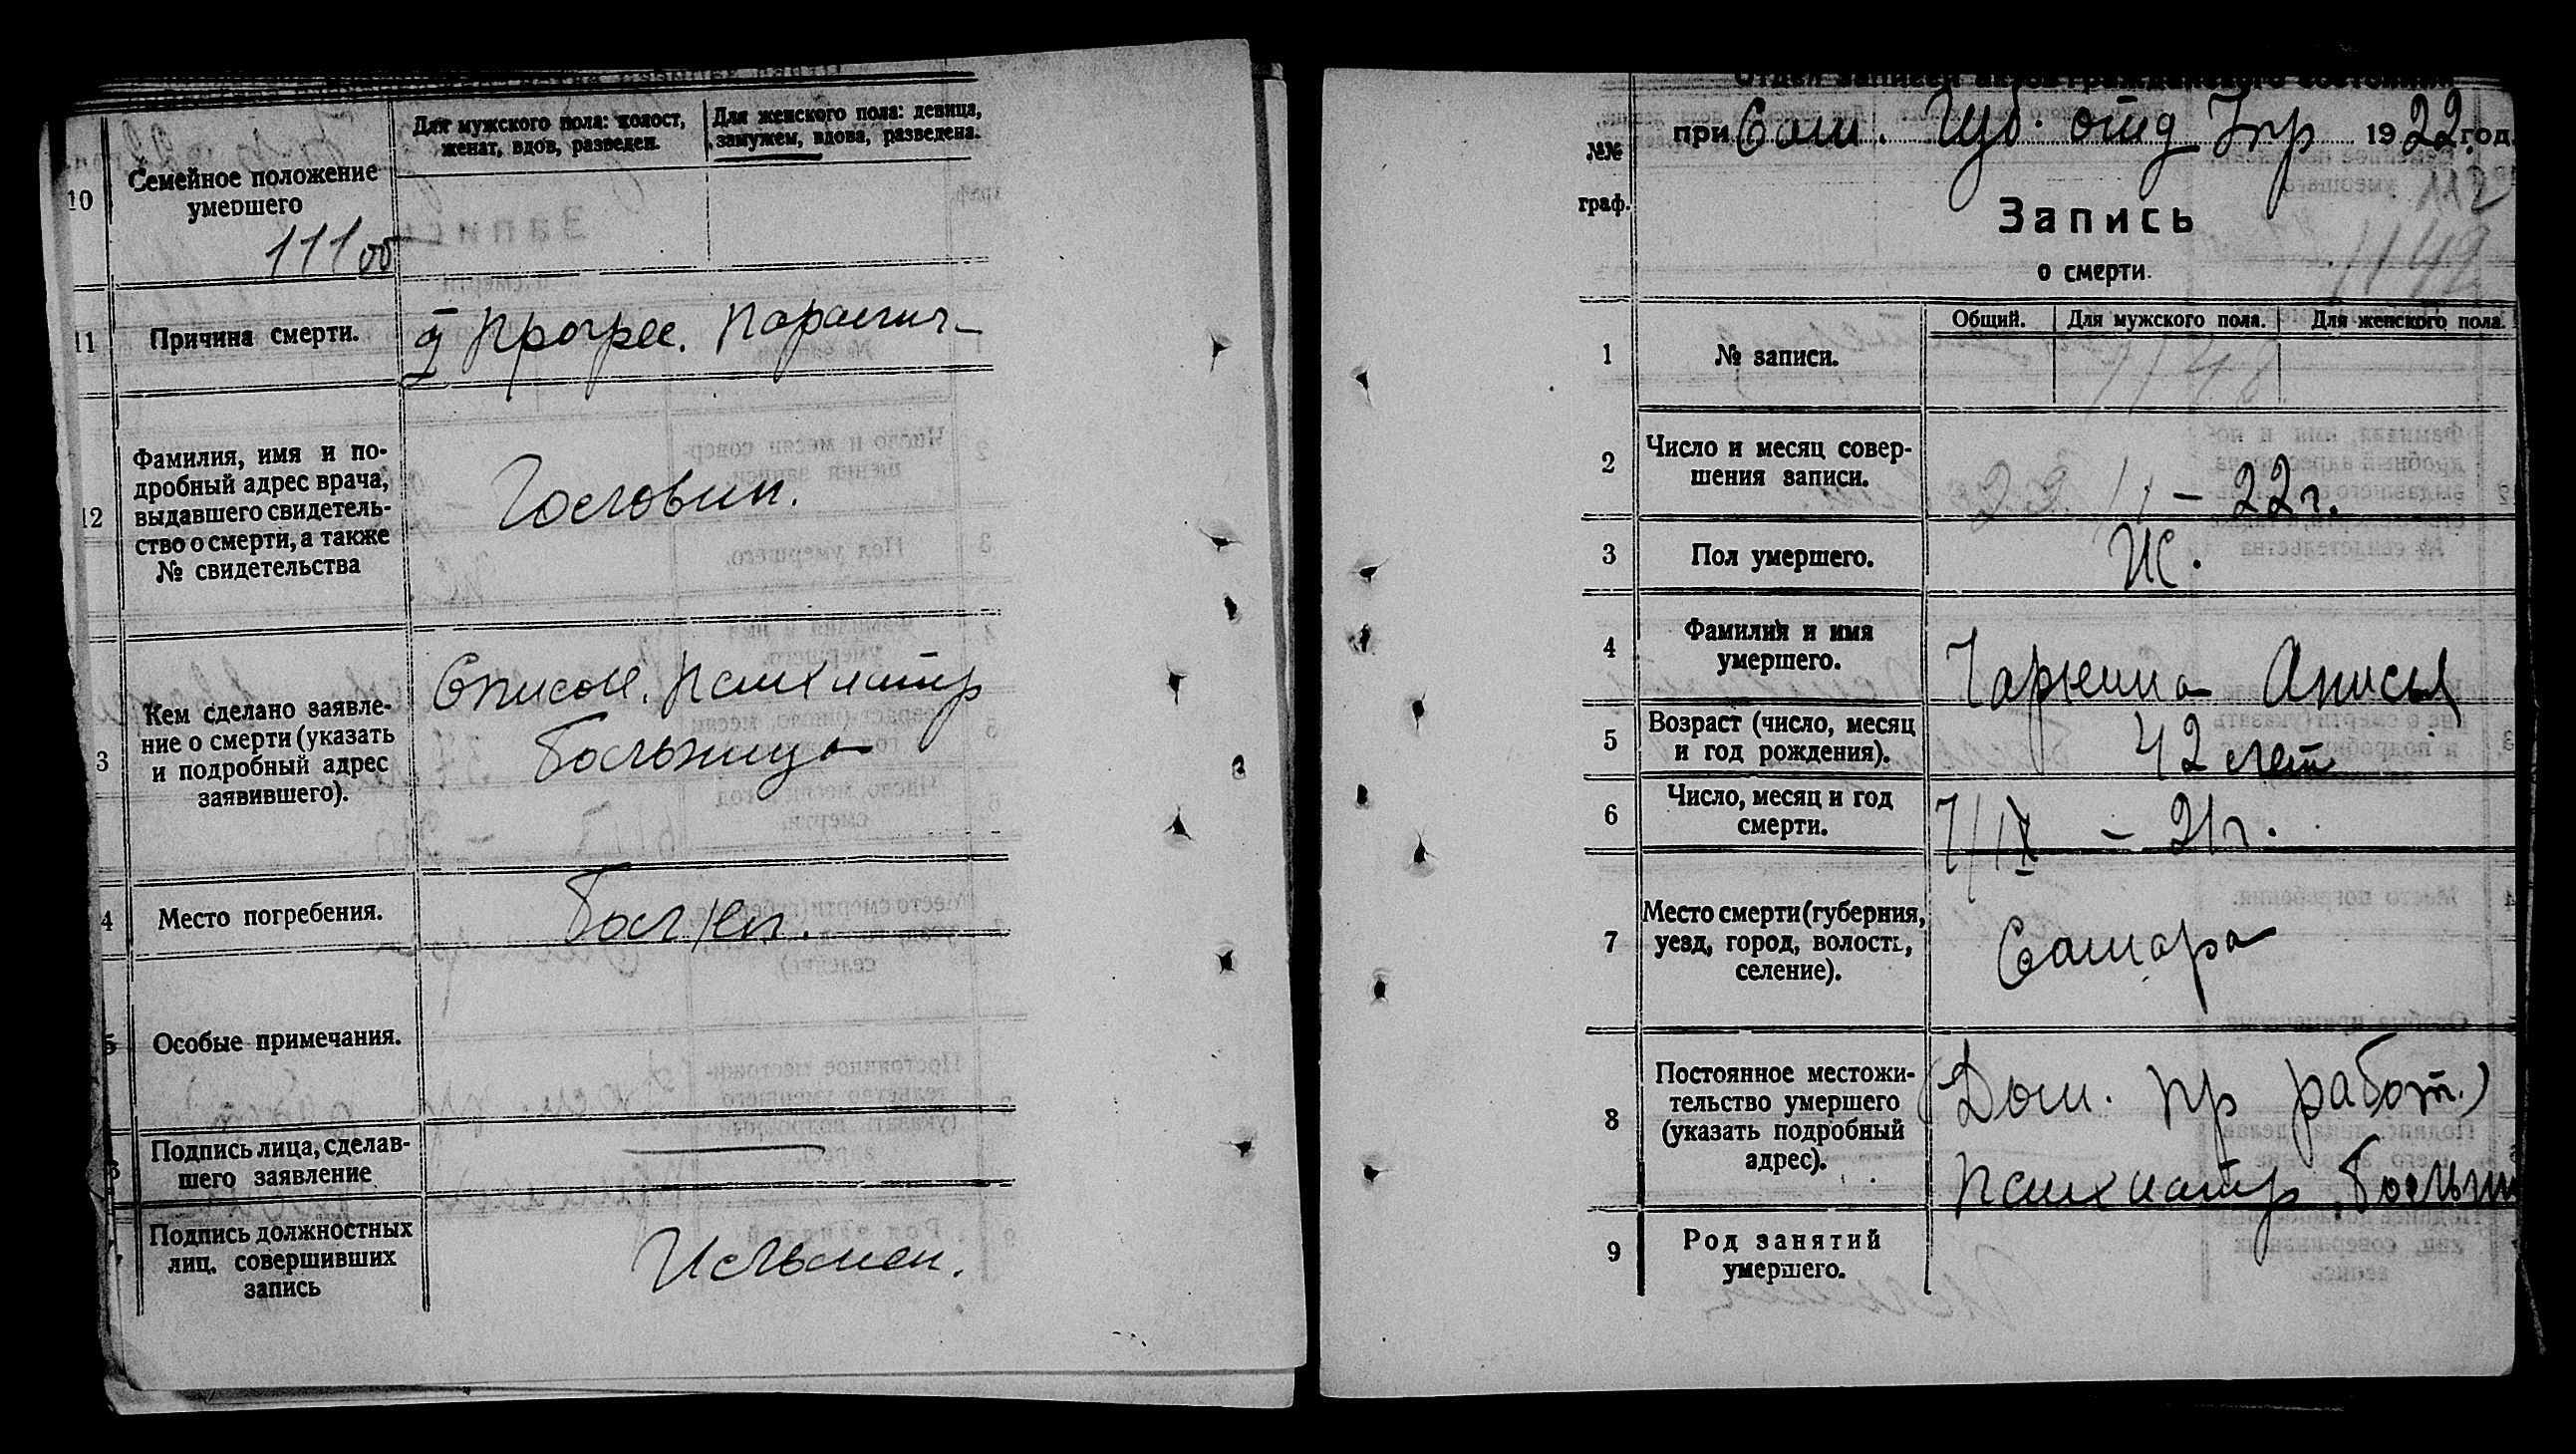 10
Семейное положение
умершего
Для мужского пола: холост,
женат, вдов, разведен.
Для женского пола: девица,
замужем, вдова, разведена.
11
Причина смерти.
прогрес. Паралич
12
Фамилия, имя и по-
дробный адрес врача,
выдавшего свидетель-
ство о смерти, а также
№ свидетельства
Головин.
3
Кем сделано заявле-
ние о смерти (указать
и подробный адрес
заявившего).
Списом. психиатр
больница
4
Место погребения.
5
Особые примечания.
Подпись лица, сделав-
шего заявление
Подпись должностных
лиц, совершивших
запись
Отдел записей актов гражданского состояния
при Сам. Губ. отд Упр 1922 год.
112
1149
№№
граф.
Запись
о смерти.
Общий.
Для мужского пола.
Для женского пола.
1
№ записи.
1148
2
Число и месяц совер-
шения записи.
22. II – 22 г.
3
Пол умершего.
Ж.
4
Фамилия и имя
умершего.
Анисья
5
Возраст (число, месяц
и год рождения).
42 лет
6
Число, месяц и год
смерти.
7/IX – 21 г.
7
Место смерти (губерния,
уезд, город, волость,
селение).
Самара
8
Постоянное местожи-
тельство умершего
(указать подробный
адрес).
(Дом. пр работ.)
психиатр. больни
9
Род занятий
умершего.